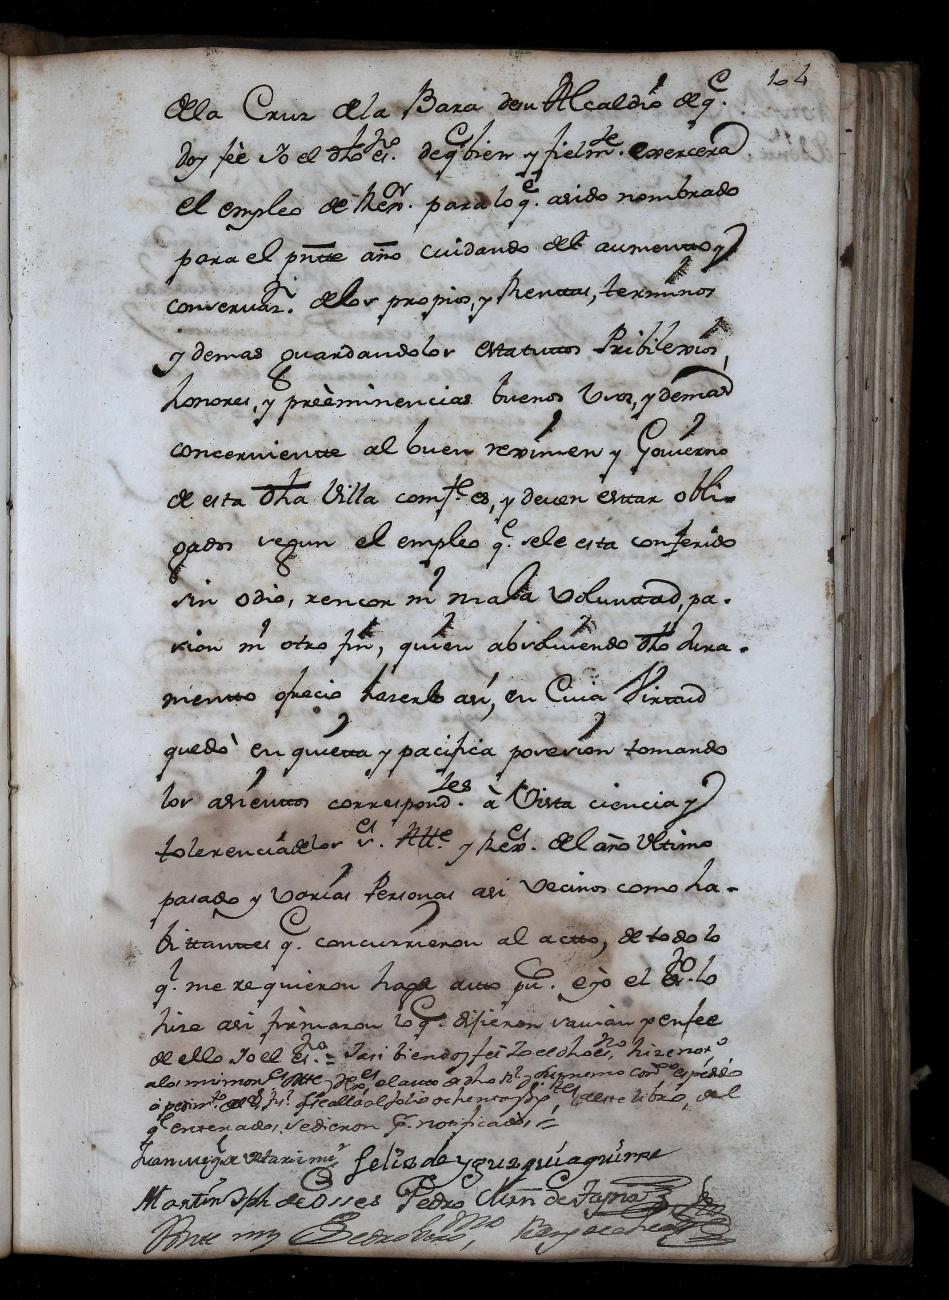 104
dela Cruz dela Bara desu Alcaldio de q.e
doy feè Yo el dho es.no de q.e bien y fielm.te exercera
el empleo de Rex.or para lo q.e asido nombrado
para el pnte año cuidando del aumentto y
conservaz.n delos propios, y Renttas, terminos
y demas guardandolos estatuttos Pribilexios,
honores, y preèminencias buenos Usos, y demas
concerniente al buen reximen y Govierno
de esta dha Villa comf.e es, y deven esttar obli-
gados segun el empleo q.e sele esta conferido
sin odio, rencor ni mala Voluntad, pa-
sion ni otro fin, quien absolviendo dho Jura-
mentto ofrecio hazerlo asi, en Cuia Virtud
quedò en quietta y pacifica posesion tomando
los asienttos correspond.tes à Vista ciencia y
tolerencia delos s.es Alt.e y Rex.es del año Ultimo
pasado y varias Personas asi Vecinos como ha-
bittanttes q.e concurrieron al actto, de todo lo
q.l me requieron haga auto pu.co e yo el es.no lo
hize asi firmaron lo q.e dijeron savian y en fee
de ello Yo el es.no = Y asi bien doy feè Yo el dho es.no hize nott.o
a los mismos s.es Alt.e y Rex.es el auto
al folio ochenta y de este libro, del
q.l entterados, se dieron p.r notificados =
Felix de yguzquiaguirre
Martin Jph de Osses Pedro Mrn de
Ante mi Pedro